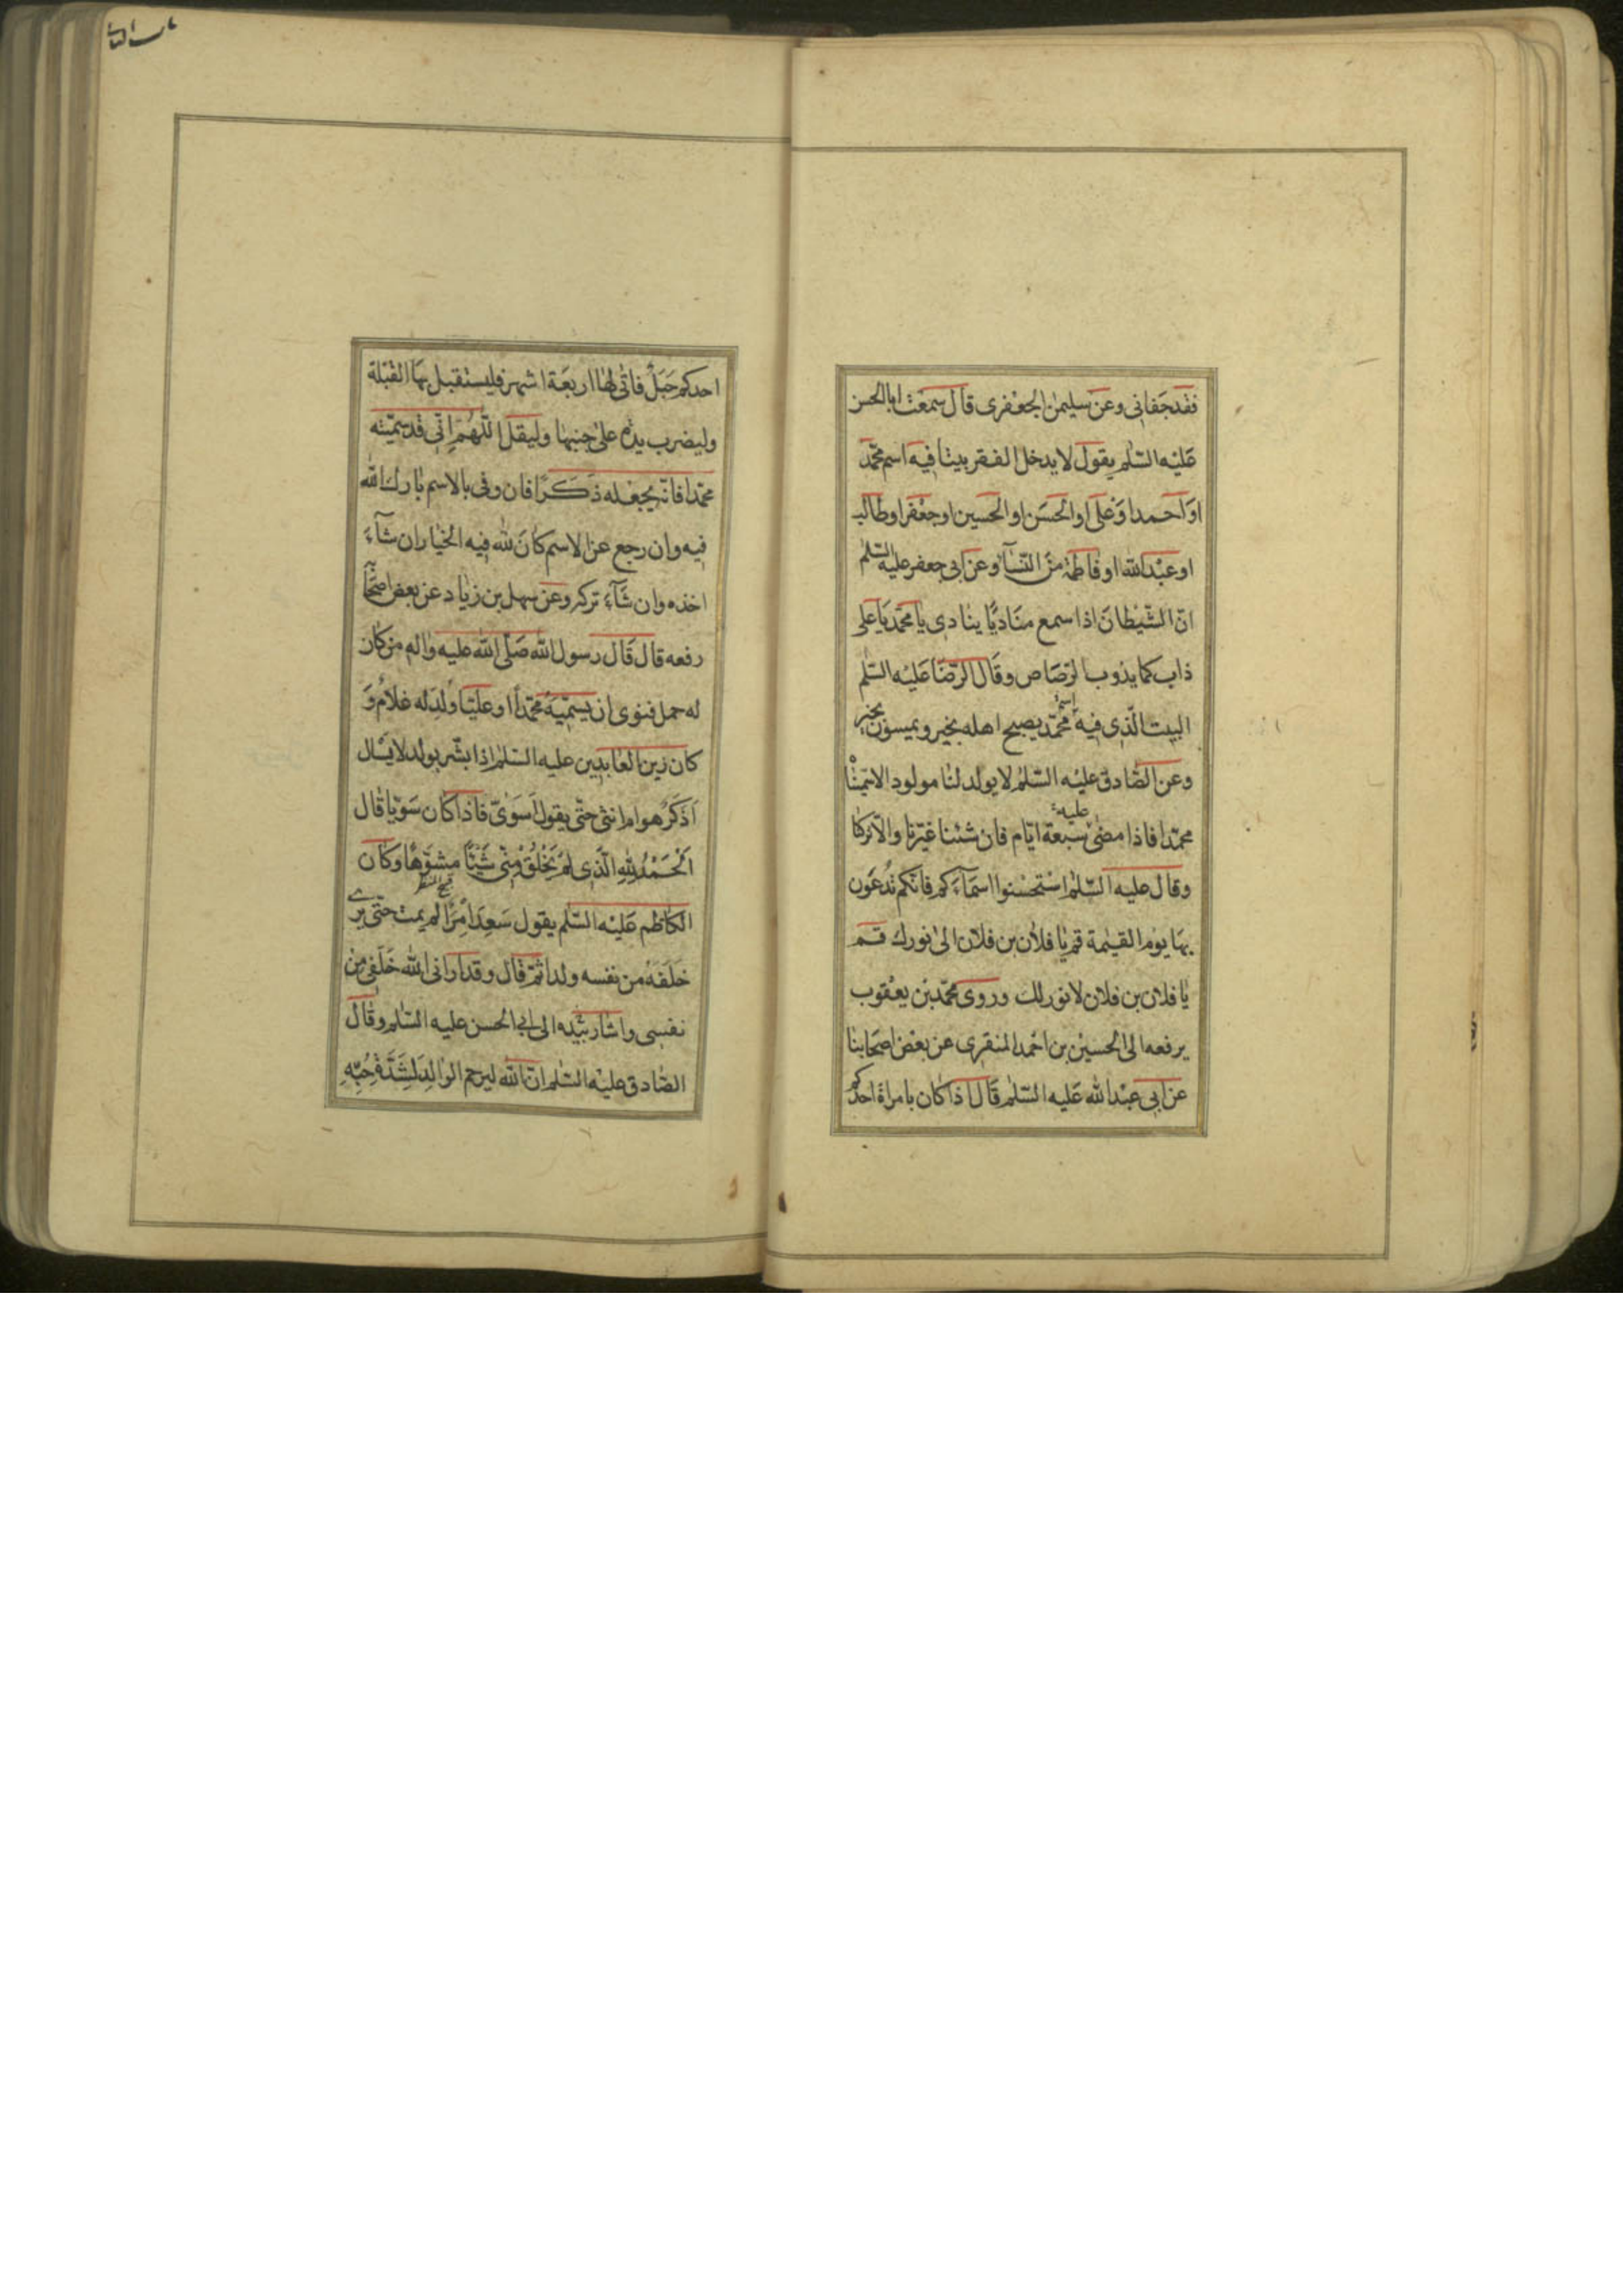 فقد جفاني وعن سليمن الجعفري قال سمعت ابا الحسن
عليه السلم يقول لا يدخل الفقر بيتا فيه اسم محمد
او احمد او علي او الحسن او الحسين او جعفر او طالب
او عبد الله او فاطمة من النسآء وعن ابي جعفر عليه السلم
ان الشيطان اذا سمع مناديا ينادي يا محمد يا علي
ذاب كما يذوب الرصاص وقال الرضا عليه السلم
البيت الذي فيه اسم محمد يصبح اهله بخير ويمسون بخير
وعن الصادق عليه السلم لا يولد لنا مولود الا سميناه
محمدا فاذا مضى عليه سبعة ايام فان شئنا غيرنا والا تركنا
وقال عليه السلم استحسنوا اسمآءكم فانكم تدعون
بها يوم القيمة قم يا فلان بن فلان الى نورك قم
يا فلان بن فلان لا نور لك وروى محمد بن يعقوب
يرفعه الى الحسين بن احمد المنقري عن بعض اصحابنا
عن ابي عبد الله عليه السلم قال اذا كان بامراة احدكم
احدكم حبل فاتى لها اربعة اشهر فليستقبل بها القبلة
وليضرب يده على جنبها وليقل اللهم اني قد سميته
محمدا فانه يجعله ذكرا فان وفى بالاسم بارك الله
فيه وان رجع عن الاسم كان لله فيه الخيار ان شآء
اخذه وان شآء تركه وعن سهل بن زياد عن بعض اصحابنا
رفعه قال قال رسول الله صلى الله عليه واله من كان
له حمل فنوى ان يسميه محمدا او عليا ولد له غلام و
كان زين العابدين عليه السلم اذا بشر بولد لا يسال
اذكر هو ام انثى حتى يقول اسوي فاذا كان سويا قال
الحمد لله الذي لم يخلق مني شيئا مشوها وكان
قبيح المنظر
الكاظم عليه السلم يقول سعد امرا لم يمت حتى يرى
خلفه من نفسه ولدا ثم قال وقد اراني الله خلفي من
نفسي واشار بيده الى ابي الحسن عليه السلم وقال
الصادق عليه السلم ان الله ليرحم الوالد لشدة حبه